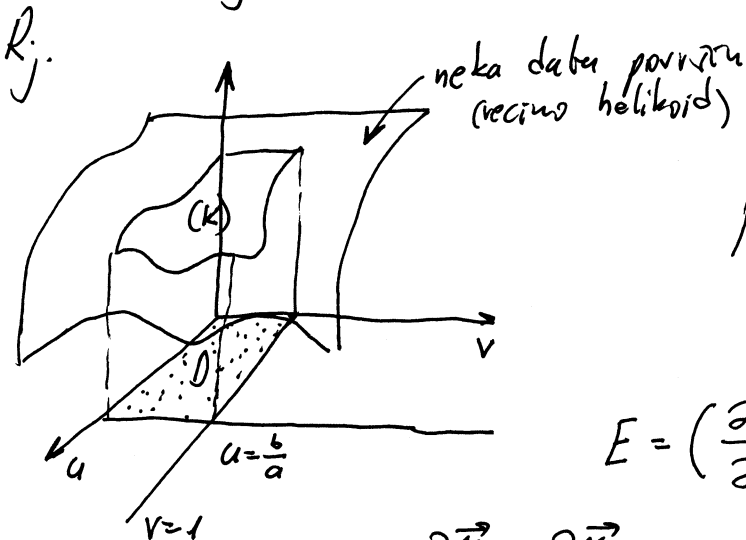 Rj.
neka data površ
(recimo helikoid)
(K)
D
v
u
u = b/a
v = 1
E = ( ∂